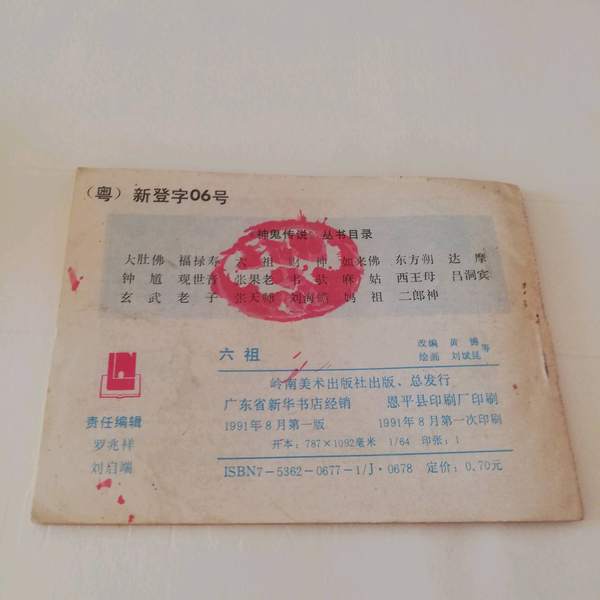 （粤）新登字06号
神鬼传说 丛书目录
大肚佛 福禄寿 六祖 如来佛 东方朔 达摩
钟馗 观世音 张果老 麻姑 西王母 吕洞宾
玄武 老子 张天师 刘海蟾 妈祖 二郎神
六祖
改编 黄
绘画 刘斌昆 等
岭南美术出版社出版、总发行
广东省新华书店经销 恩平县印刷厂印刷
1991年8月第一版 1991年8月第一次印刷
开本：787×1092毫米 1/64 印张：1
ISBN7-5362-0677-1/J·0678 定价：0.70元
责任编辑
罗兆祥
刘启端